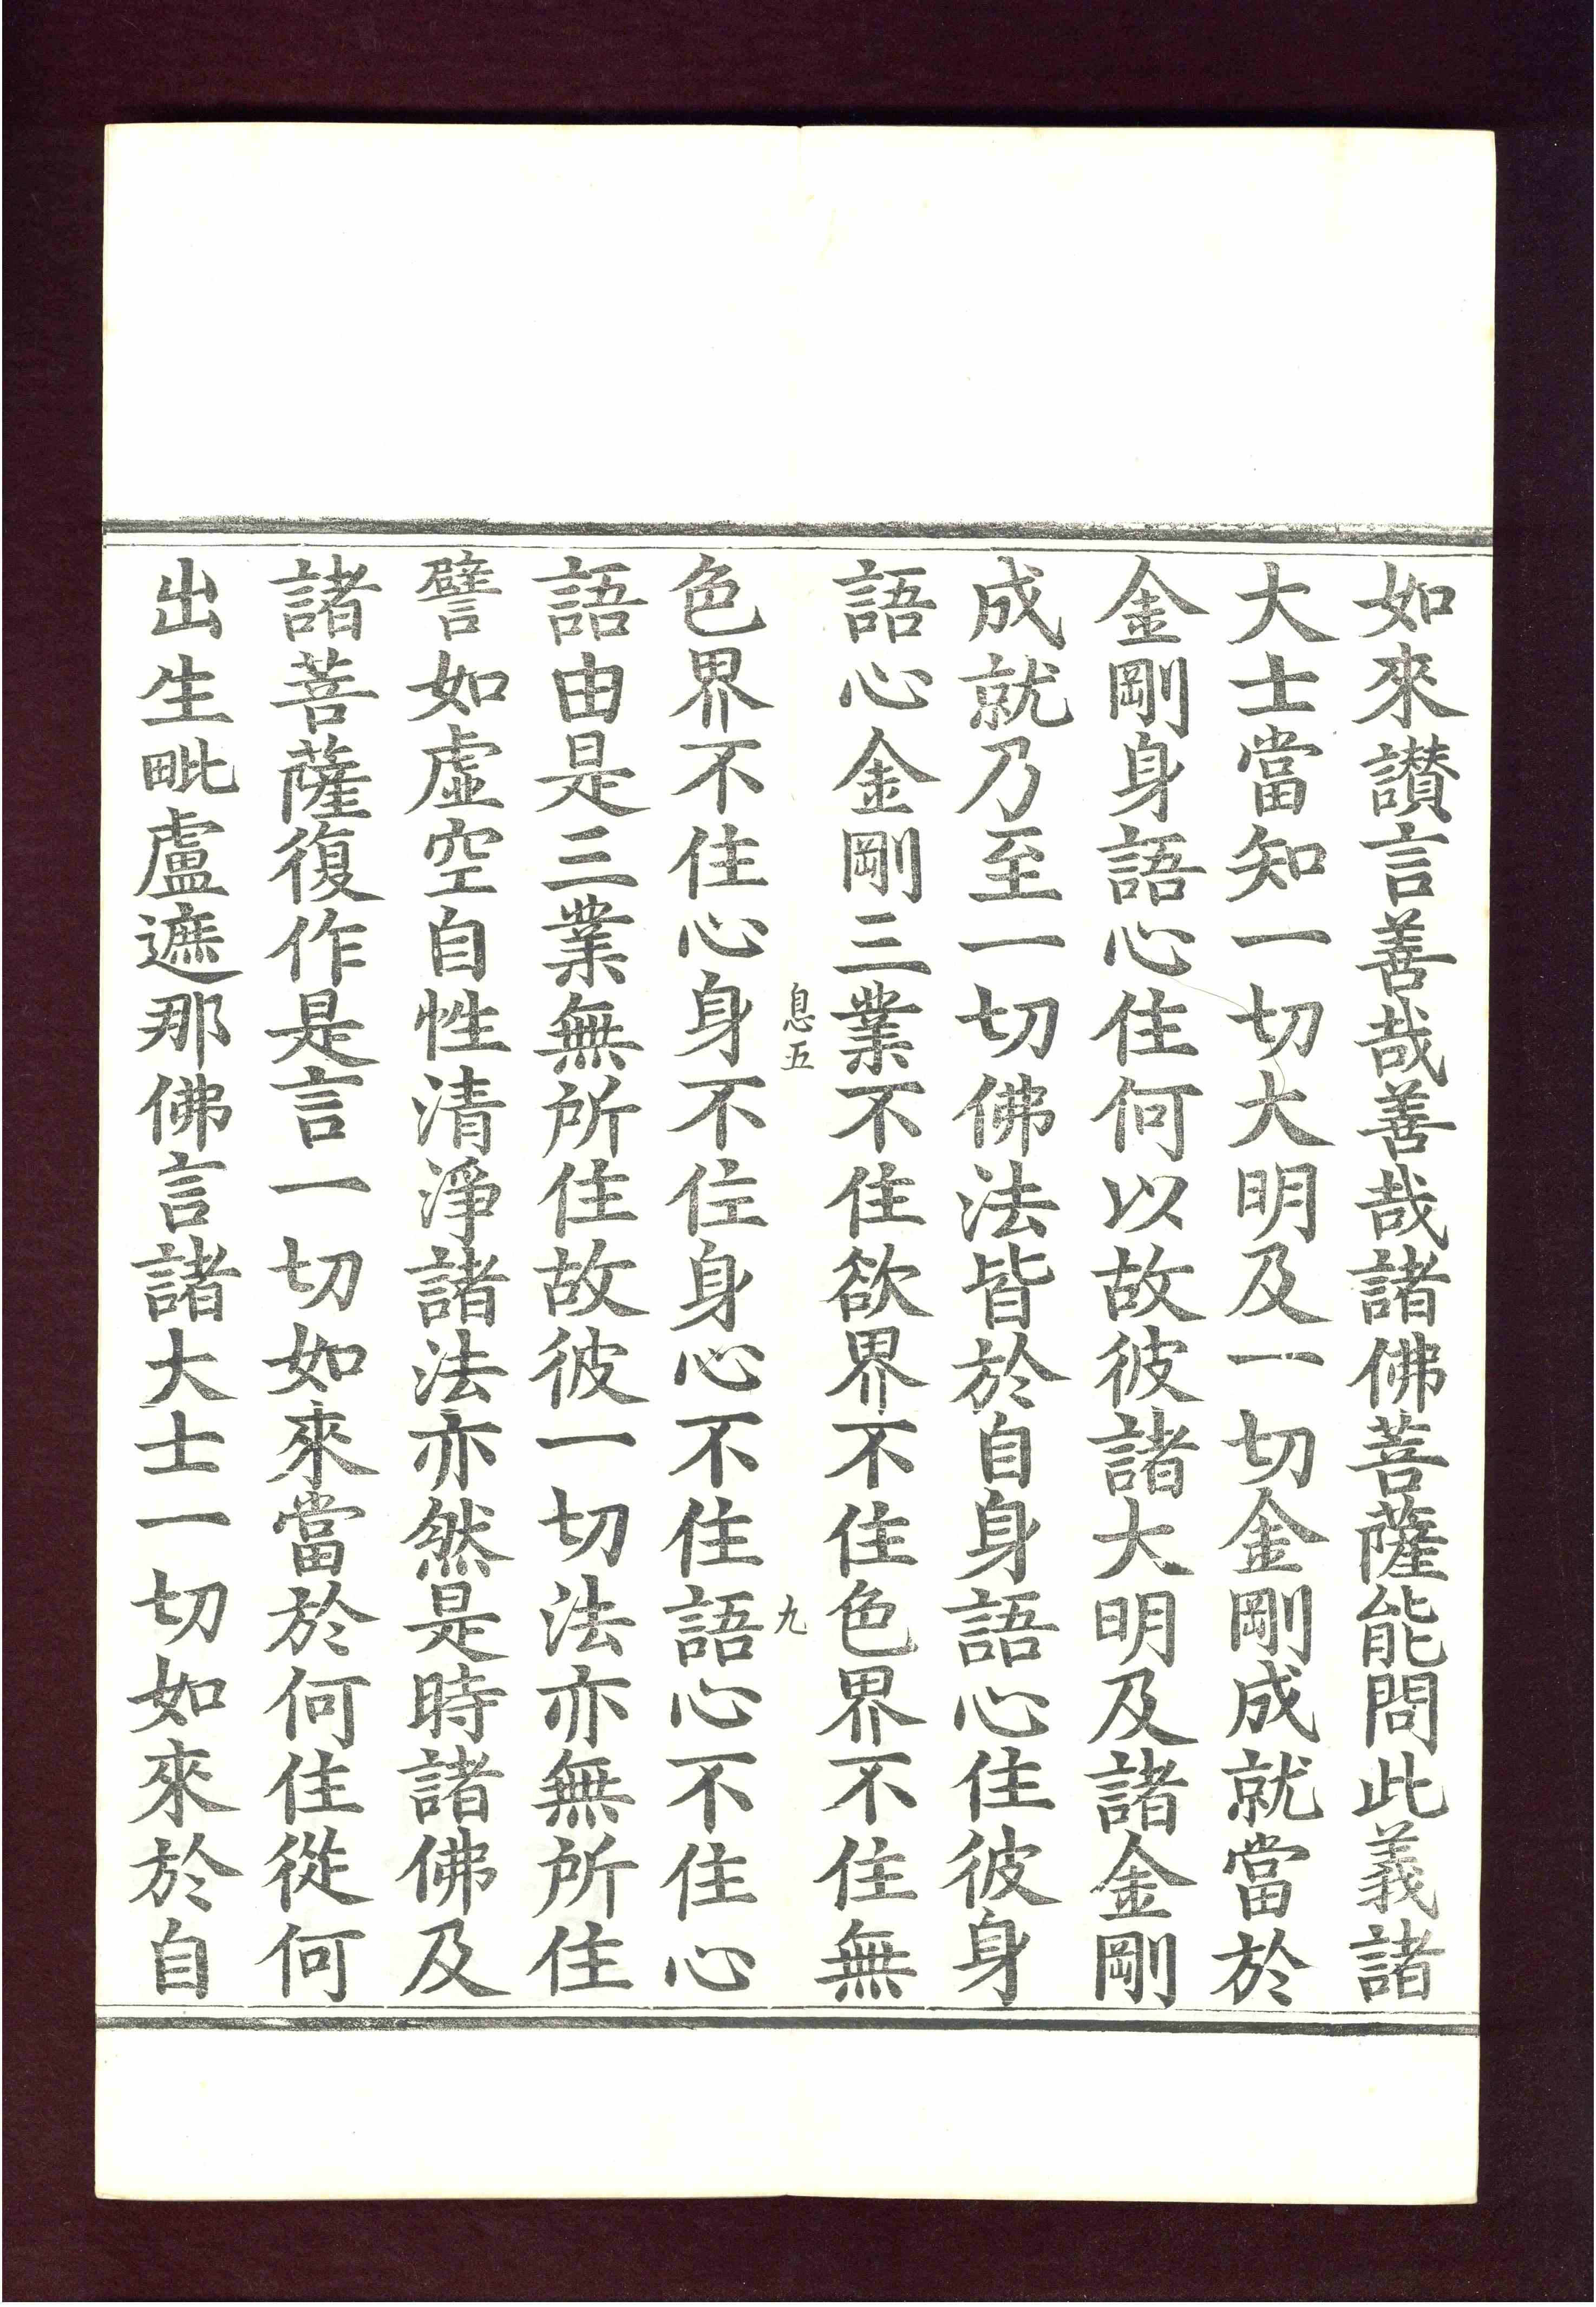 如來讃言善哉善哉諸佛菩薩能問此義諸
大士當知一切大明及一切金剛成就當於
金剛身語心住何以故彼諸大明及諸金剛
成就乃至一切佛法皆於自身語心住彼身
語心金剛三業不住欲界不住色界不住無
息五
九
色界不住心身不住身心不住語心不住心
語由是三業無所住故彼一切法亦無所住
譬如虛空自性清淨諸法亦然是時諸佛及
諸菩薩復作是言一切如來當於何住從何
出生毗盧遮那佛言諸大士一切如來於自